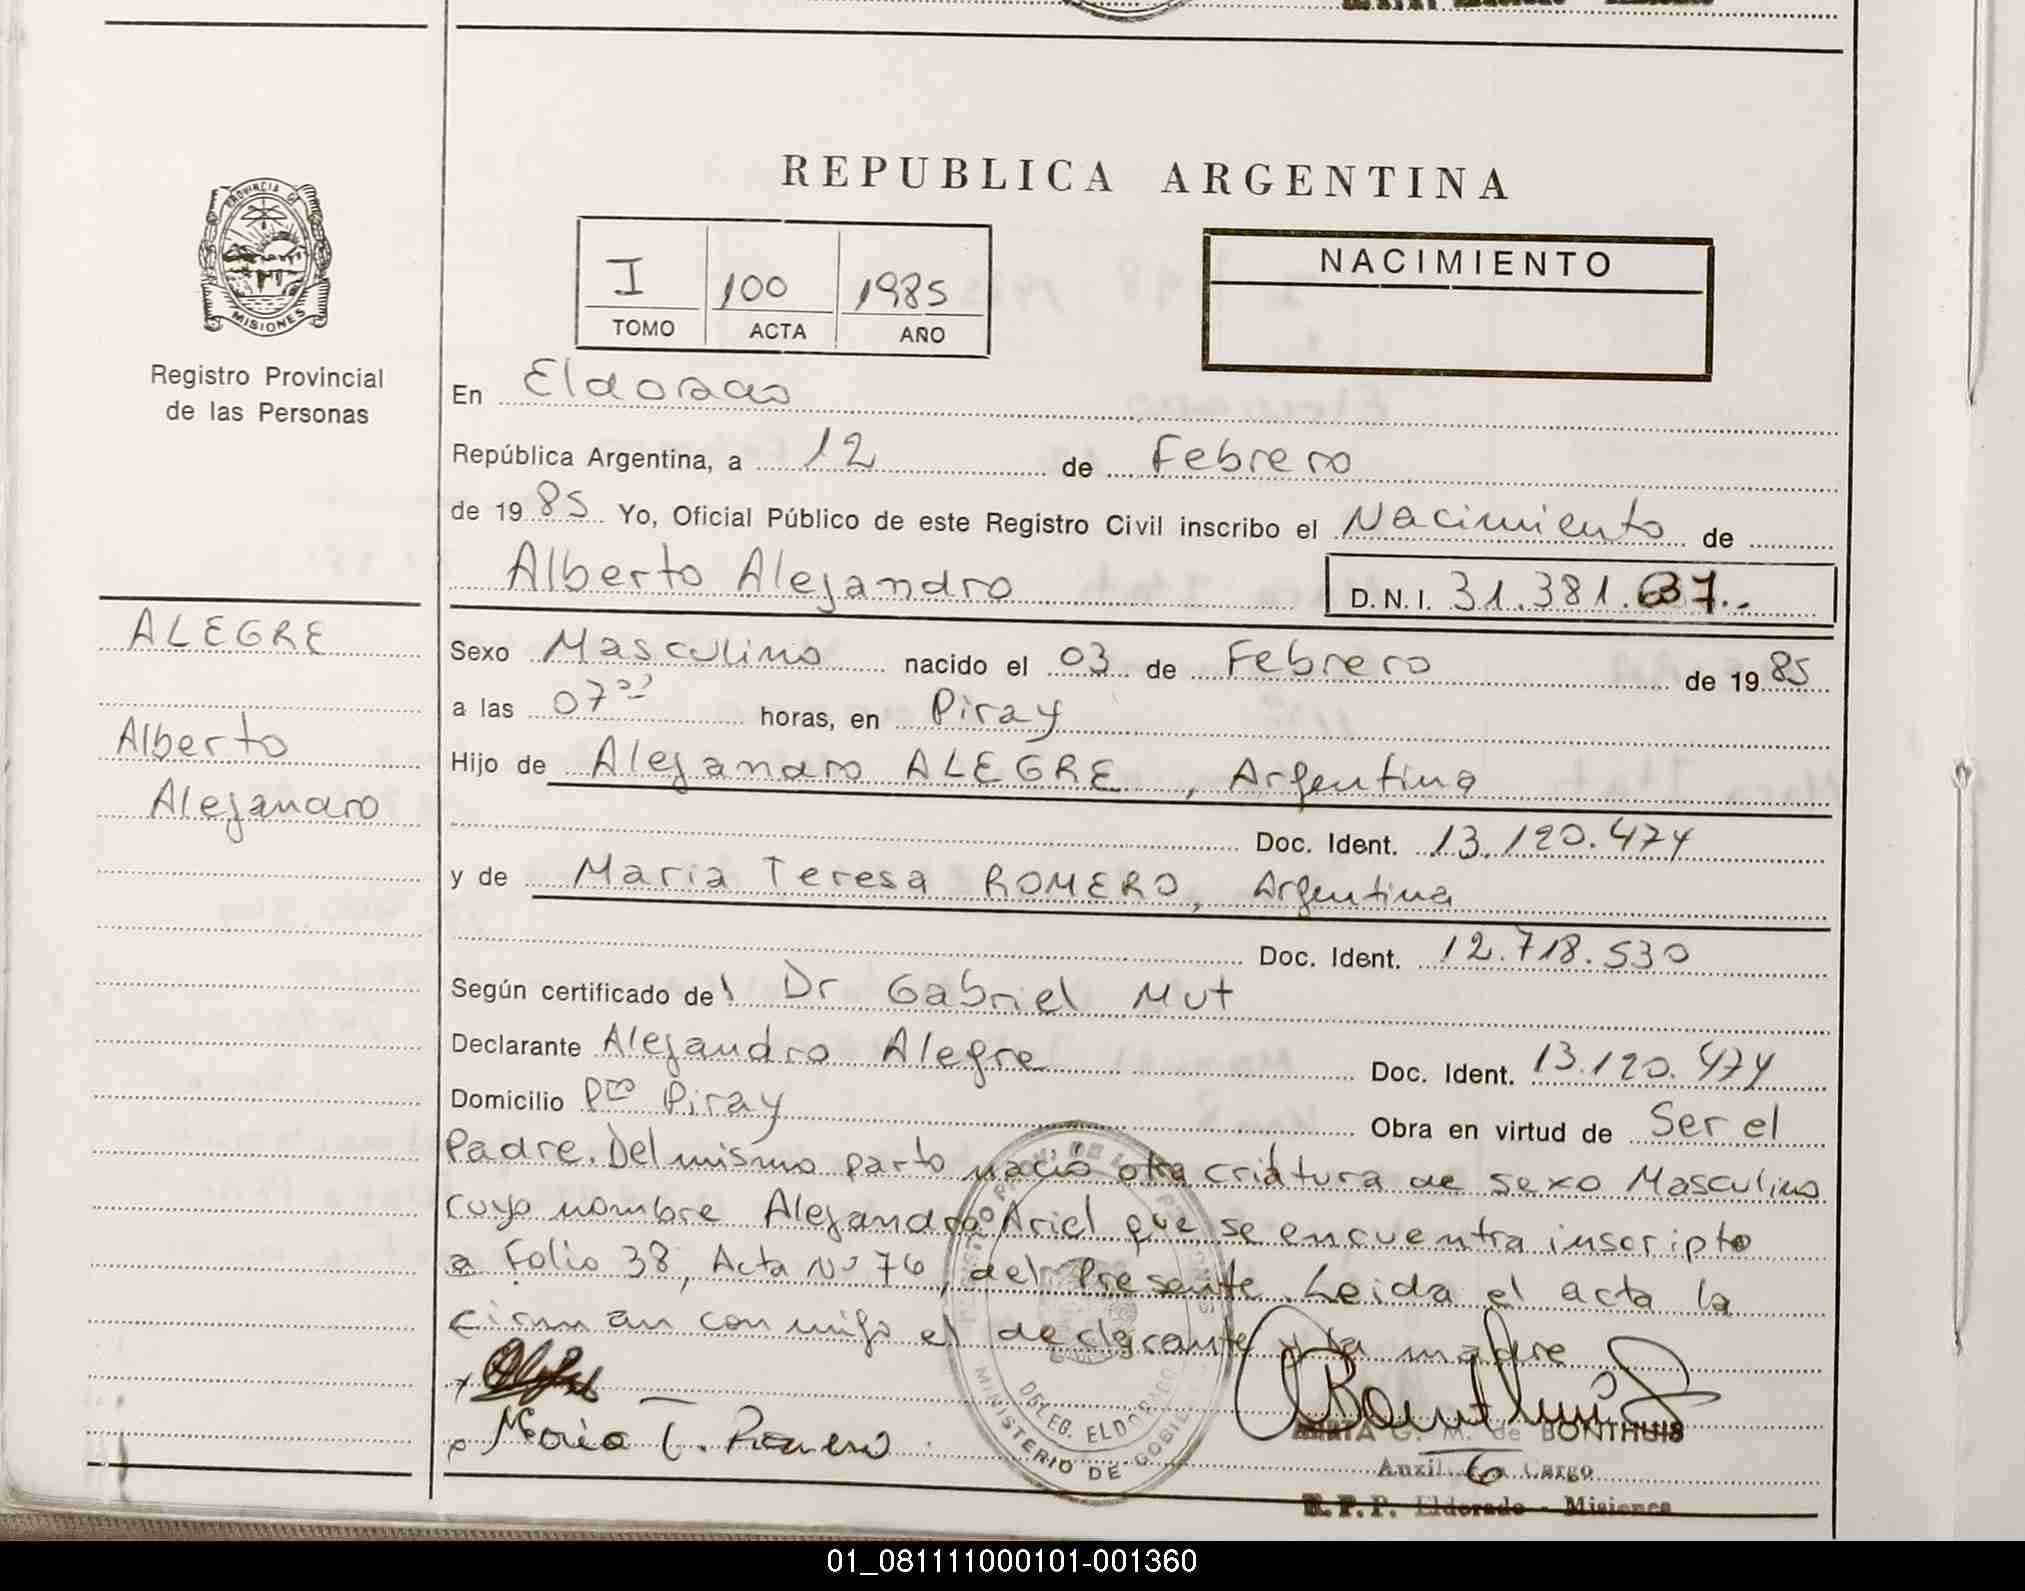 REPUBLICA ARGENTINA
PROVINCIA D
MISIONES
Registro Provincial
de las Personas
I 100 1985
TOMO ACTA AÑO
NACIMIENTO
En Eldorado
República Argentina, a 12 de Febrero
de 1985 Yo, Oficial Público de este Registro Civil inscribo el Nacimiento de
Alberto Alejandro D.N.I. 31.381.637.-
ALEGRE
Alberto
Alejandro
Sexo Masculino nacido el 03 de Febrero de 1985
a las 07 horas, en Piray
Hijo de Alejandro ALEGRE, Argentina
Doc. Ident. 13.120.474
y de Maria Teresa ROMERO, Argentina
Doc. Ident. 12.718.530
Según certificado del Dr Gabriel Mut
Declarante Alejandro Alegre Doc. Ident. 13.120.474
Domicilio Pto Piray Obra en virtud de Ser el
Padre. Del mismo parto nació otra criatura de sexo Masculino
cuyo nombre Alejandro Ariel que se encuentra inscripto
a Folio 38, Acta Nº 76, del Presente. Leida el acta la
firman conmigo el declarante y la madre
Maria T. Romero
DELEG. ELDORADO
MINISTERIO DE GOBIE
G. M. de BONTHUIS
Auxil. a Cargo
R.P.P. Eldorado - Misiones
01_081111000101-001360